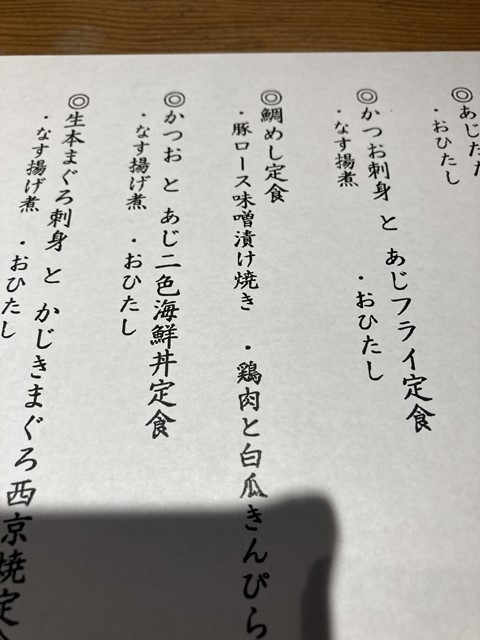 ◎あじた
・おひたし
◎かつお刺身 と あじフライ定食
・なす揚煮 ・おひたし
◎鯛めし定食
・豚ロース味噌漬け焼き ・鶏肉と白瓜きんぴら
◎かつお と あじ二色海鮮丼定食
・なす揚げ煮 ・おひたし
◎生本まぐろ刺身 と かじきまぐろ西京焼定
・なす揚げ煮 ・おひたし